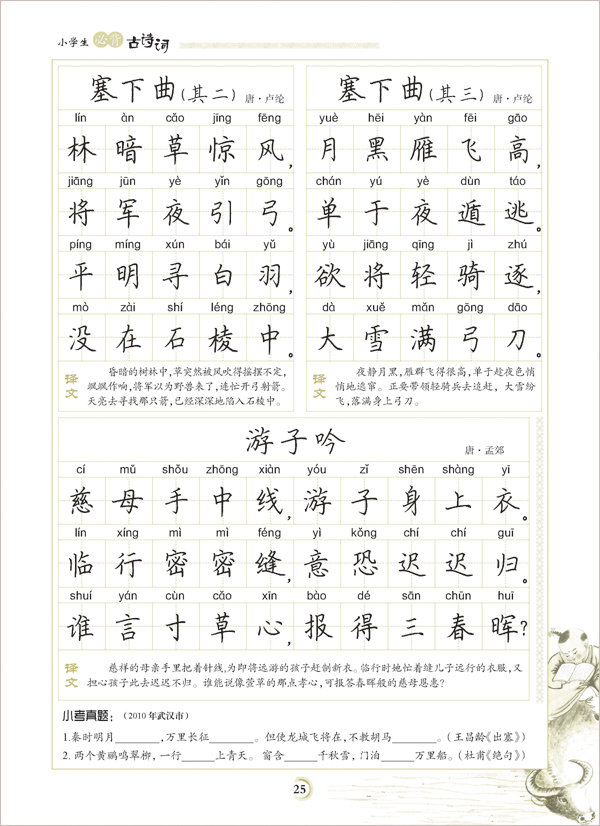 小学生 必背 古诗词
塞下曲(其二) 唐·卢纶
lín àn cǎo jīng fēng
林暗草惊风,
jiāng jūn yè yǐn gōng
将军夜引弓。
píng míng xún bái yǔ
平明寻白羽,
mò zài shí léng zhōng
没在石棱中。
译文
昏暗的树林中,草突然被风吹得摇摆不定,
飒飒作响,将军以为野兽来了,连忙开弓射箭。
天亮去寻找那只箭,已经深深地陷入石棱中。
塞下曲(其三) 唐·卢纶
yuè hēi yàn fēi gāo
月黑雁飞高,
chán yú yè dùn táo
单于夜遁逃。
yù jiāng qīng jì zhú
欲将轻骑逐,
dà xuě mǎn gōng dāo
大雪满弓刀。
译文
夜静月黑,雁群飞得很高,单于趁夜色悄
悄地逃窜。正要带领轻骑兵去追赶,大雪纷
飞,落满身上弓刀。
游子吟 唐·孟郊
cí mǔ shǒu zhōng xiàn yóu zǐ shēn shàng yī
慈母手中线,游子身上衣。
lín xíng mì mì féng yì kǒng chí chí guī
临行密密缝,意恐迟迟归。
shuí yán cùn cǎo xīn bào dé sān chūn huī
谁言寸草心,报得三春晖?
译文
慈祥的母亲手里把着针线,为即将远游的孩子赶制新衣。临行时她忙着缝儿子远行的衣服,又
担心孩子此去迟迟不归。谁能说像萱草的那点孝心,可报答春晖般的慈母恩惠?
小考真题: (2010年武汉市)
1.秦时明月______,万里长征______。但使龙城飞将在,不教胡马______。(王昌龄《出塞》)
2.两个黄鹂鸣翠柳,一行______上青天。窗含______千秋雪,门泊______万里船。(杜甫《绝句》)
25